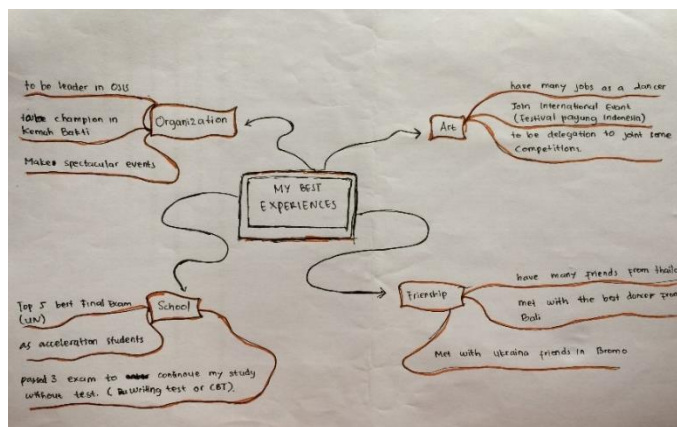 MY BEST
EXPERIENCES
Organization
to be leader in OSIS
to be champion in
Kemah Bakti
Makes spectacular events
Art
have many jobs as a dancer
Join International Event
(Festival payung Indonesia)
to be delegation to joint some
Competitions.
School
Top 5 best Final Exam
(UN)
as acceleration students
passed 3 exam to continoue my study
without test. (writing test or CBT).
Friendship
have many friends from thaila
met with the best dancer from
Bali
Met with ukraina friends in Bromo